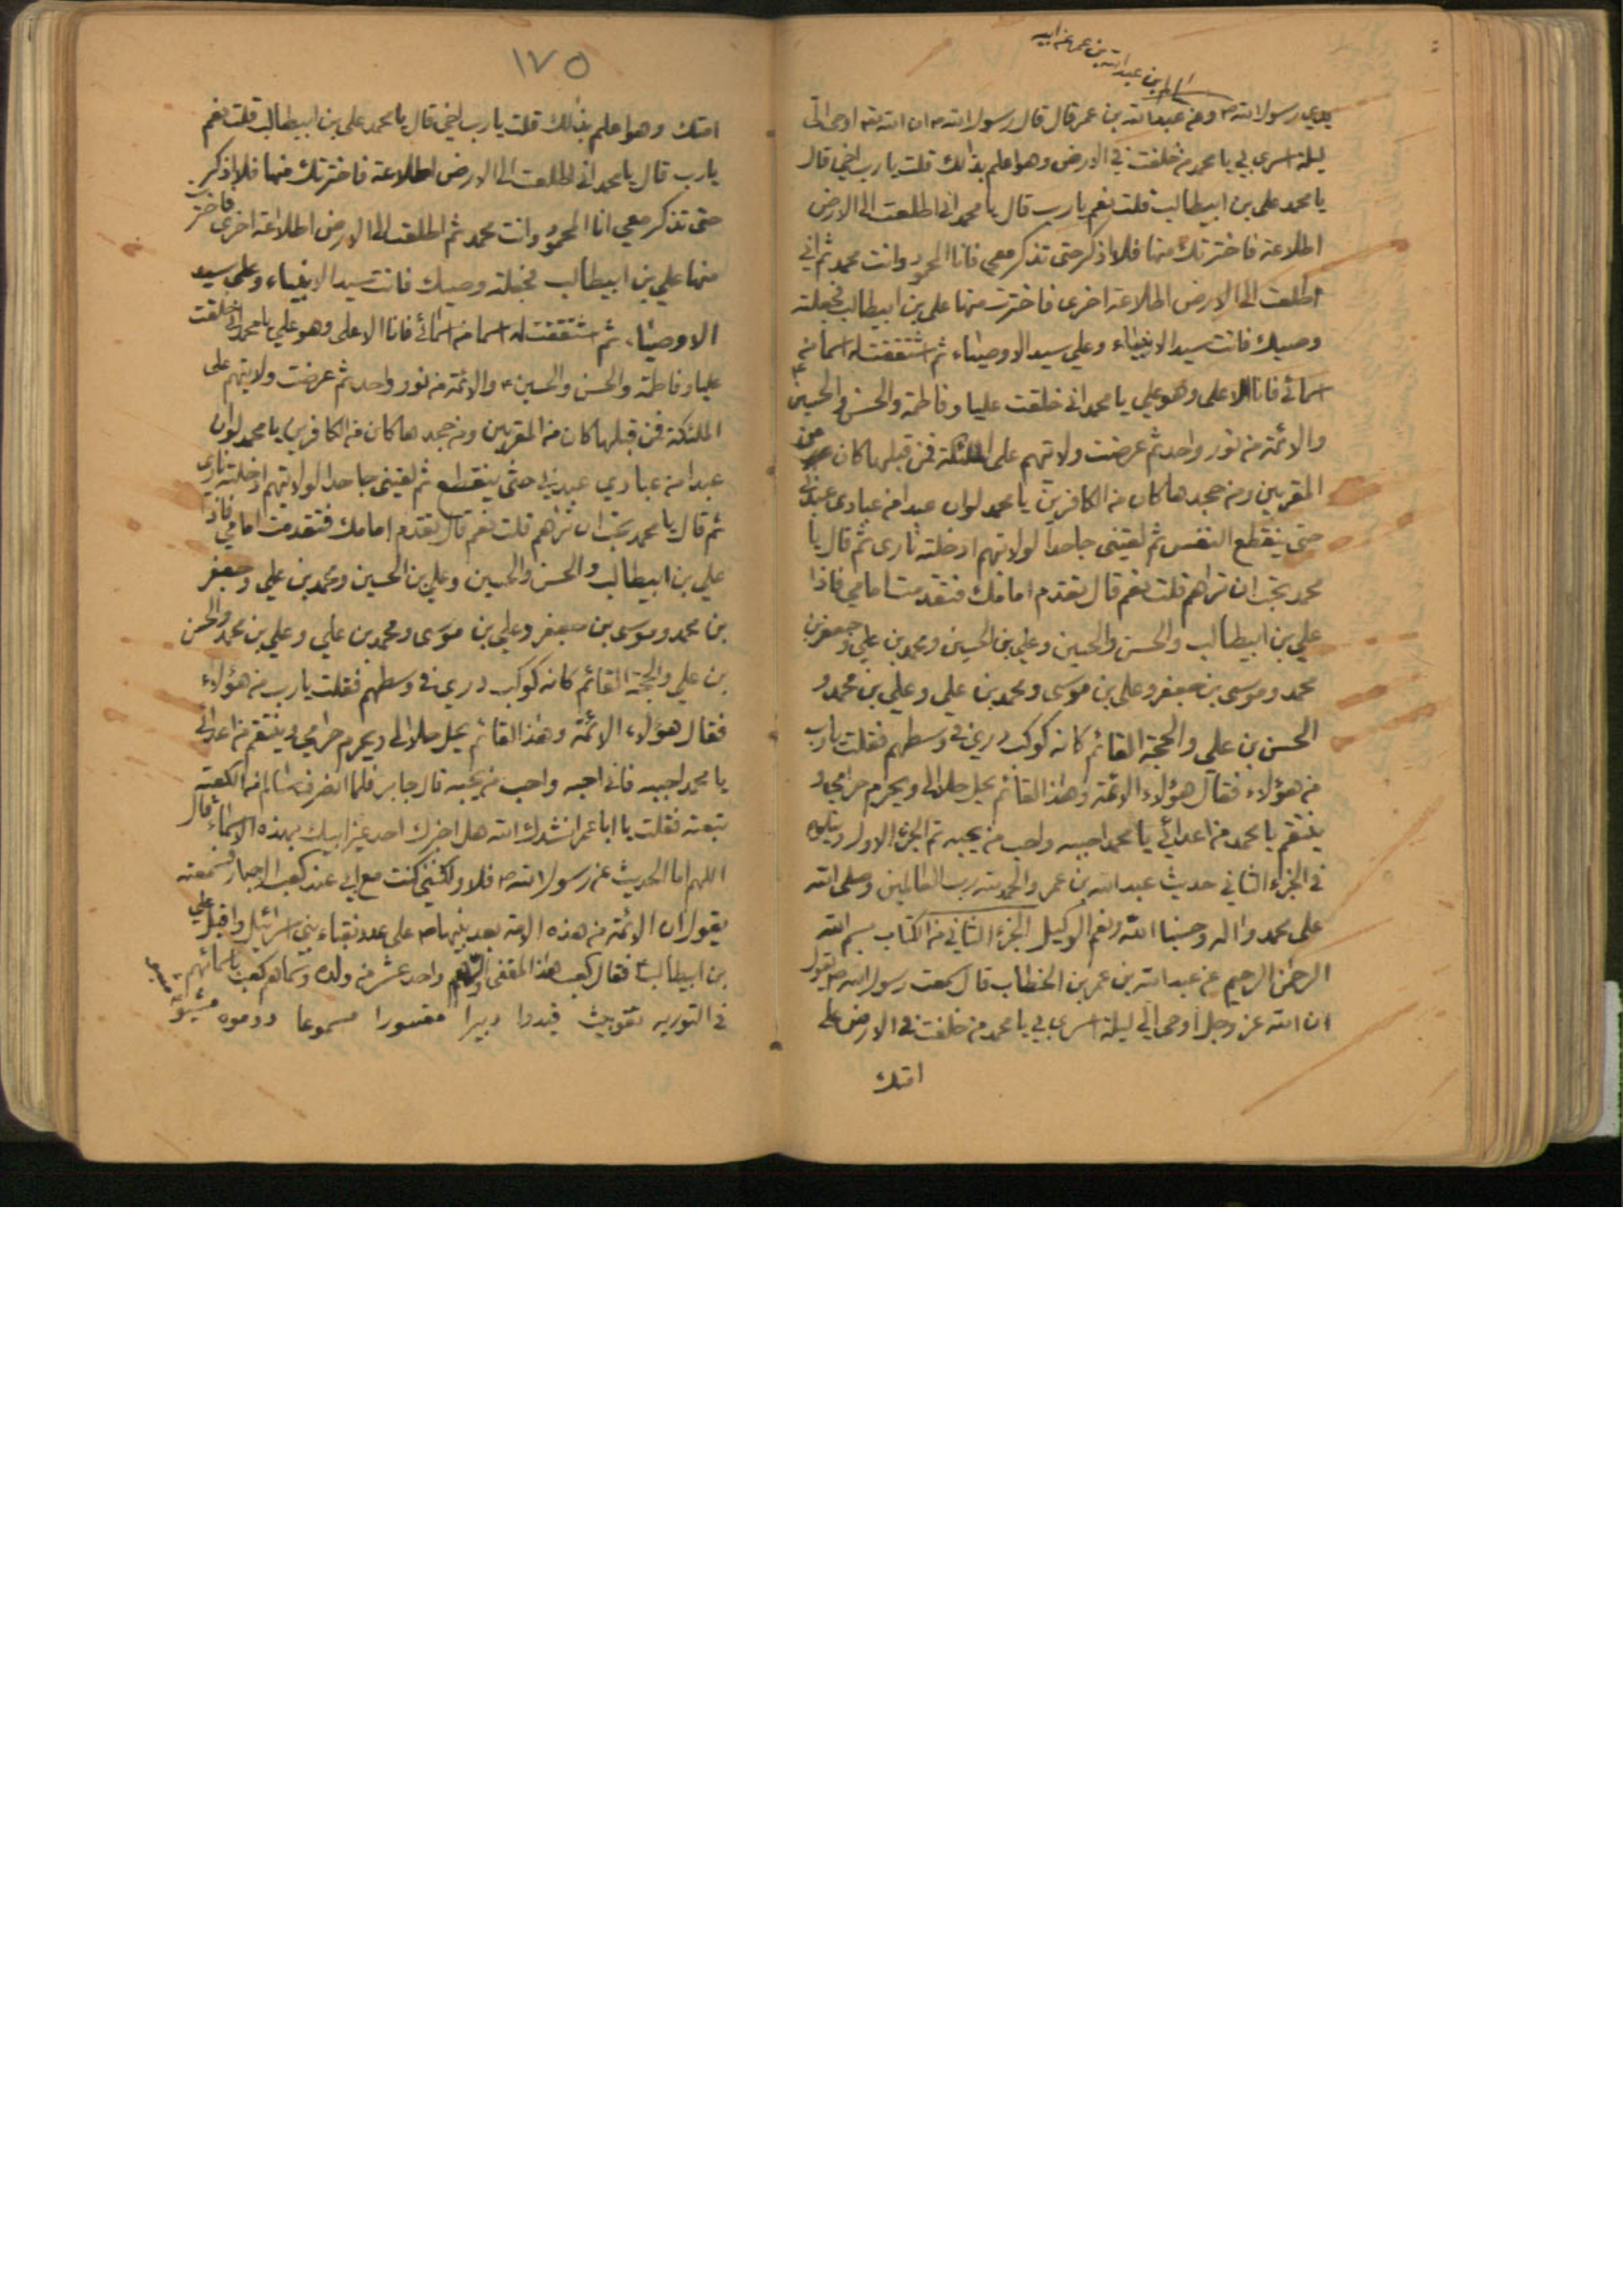 سالم بن عبد الله بن عمر عن ابيه
يدي رسول الله ص وعن عبد الله بن عمر قال قال رسول الله ص ان الله تعه اوحى الي
ليلة اسري بي يا محمد من خلفت في الارض وهو اعلم بذالك قلت يا رب اخي قال
يا محمد علي بن ابيطالب قلت نعم يا رب قال يا محمد اني اطلعت الى الارض
اطلاعة فاخترتك منها فلا اذكر حتى تذكر معي فانا المحمود وانت محمد ثم اني
اطلعت الى الارض اطلاعة اخرى فاخترت منها علي بن ابيطالب فجعلته
وصيك فانت سيد الانبياء وعلي سيد الاوصياء ثم شققت له اسما من
اسمائي فانا الاعلى وهو علي يا محمد اني خلقت عليا وفاطمة والحسن والحسين ع
والائمة من نور واحد ثم عرضت ولايتهم على الملئكة فمن قبلها كان من
المقربين ومن جحدها كان من الكافرين يا محمد لو ان عبدا من عبادي عبدني
حتى ينقطع النفس ثم لقيني جاحدا لولايتهم ادخلته ناري ثم قال يا
محمد تحب ان تراهم قلت نعم قال تقدم امامك فتقدمت امامي فاذا
علي بن ابيطالب والحسن والحسين وعلي بن الحسين ومحمد بن علي وجعفر بن
محمد وموسى بن جعفر وعلي بن موسى ومحمد بن علي وعلي بن محمد و
الحسن بن علي والحجة القائم كانه كوكب دري في وسطهم فقلت يا رب
من هؤلاء فقال هؤلاء الائمة وهذا القائم يحل حلالي ويحرم حرامي و
ينتقم يا محمد من اعدائي يا محمد احببه واحب من يحبه تم الجزء الاول ويتلوه
في الجزء الثاني حديث عبد الله بن عمر والحمد لله رب العالمين وصلى الله
على محمد واله وحسبنا الله ونعم الوكيل الجزء الثاني من الكتاب بسم الله
الرحمن الرحيم عن عبد الله بن عمر بن الخطاب قال سمعت رسول الله ص يقول
ان الله عز وجل اوحى الي ليلة اسري بي يا محمد من خلفت في الارض على
امتك
١٧٥
امتك وهو اعلم بذلك قلت يا رب اخي قال يا محمد علي بن ابيطالب قلت نعم
يا رب قال يا محمد اني اطلعت الى الارض اطلاعة فاخترتك منها فلا اذكر
حتى تذكر معي انا المحمود وانت محمد ثم اطلعت الى الارض اطلاعة اخرى فاخترت
منها علي بن ابيطالب فجعلته وصيك فانت سيد الانبياء وعلي سيد
الاوصياء ثم شققت له اسما من اسمائي فانا الاعلى وهو علي يا محمد اني خلقت
عليا وفاطمة والحسن والحسين ع والائمة من نور واحد ثم عرضت ولايتهم على
الملئكة فمن قبلها كان من المقربين ومن جحدها كان من الكافرين يا محمد لو ان
عبدا من عبادي عبدني حتى ينقطع ثم لقيني جاحدا لولايتهم ادخلته ناري
ثم قال يا محمد تحب ان تراهم قلت نعم قال تقدم امامك فتقدمت امامي فاذا
علي بن ابيطالب والحسن والحسين وعلي بن الحسين ومحمد بن علي وجعفر
بن محمد وموسى بن جعفر وعلي بن موسى ومحمد بن علي وعلي بن محمد والحسن
بن علي والحجة القائم كانه كوكب دري في وسطهم فقلت يا رب من هؤلاء
فقال هؤلاء الائمة وهذا القائم يحل حلالي ويحرم حرامي وينتقم من اعدائي
يا محمد احببه فاني احبه واحب من يحبه قال جابر فلما انصرف سالم من الكعبة
تبعته فقلت يا ابا عمر انشدك الله هل اخبرك احد غير ابيك بهذه الاسماء قال
اللهم اما الحديث عن رسول الله ص فلا ولكنني كنت مع ابي عند كعب الاحبار فسمعته
يقول ان الائمة من هذه الامة بعد نبيها ص على عدد نقباء بني اسرائيل واقبل علي
بن ابيطالب ع فقال كعب هذا المقفى اولهم واحد عشر من ولده وسماهم كعب باسمائهم
في التورية تقوبيث قيدوا دبيرا مفسورا مسموعا دوموه مشيو